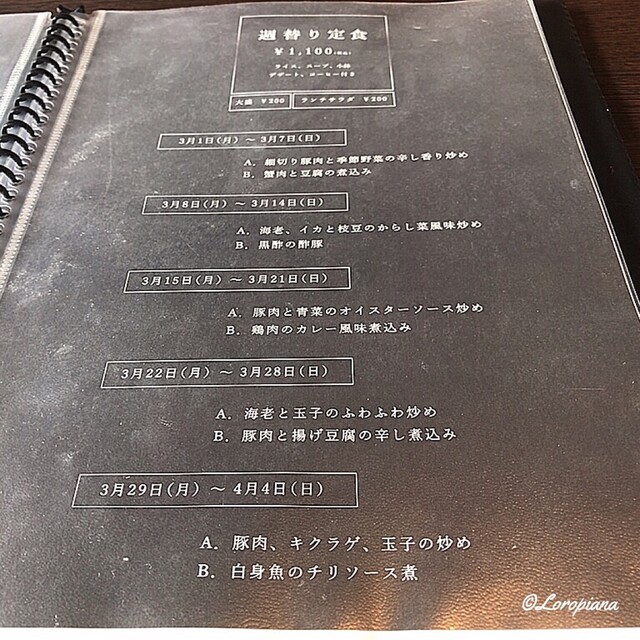 週替り定食
¥1,100(税込)
ライス、スープ、小鉢
デザート、コーヒー付き
大盛 ¥200 ランチサラダ ¥200
3月1日(月) ～ 3月7日(日)
A. 細切り豚肉と季節野菜の辛し香り炒め
B. 蟹肉と豆腐の煮込み
3月8日(月) ～ 3月14日(日)
A. 海老、イカと枝豆のからし菜風味炒め
B. 黒酢の酢豚
3月15日(月) ～ 3月21日(日)
A. 豚肉と青菜のオイスターソース炒め
B. 鶏肉のカレー風味煮込み
3月22日(月) ～ 3月28日(日)
A. 海老と玉子のふわふわ炒め
B. 豚肉と揚げ豆腐の辛し煮込み
3月29日(月) ～ 4月4日(日)
A. 豚肉、キクラゲ、玉子の炒め
B. 白身魚のチリソース煮
©Loropiana